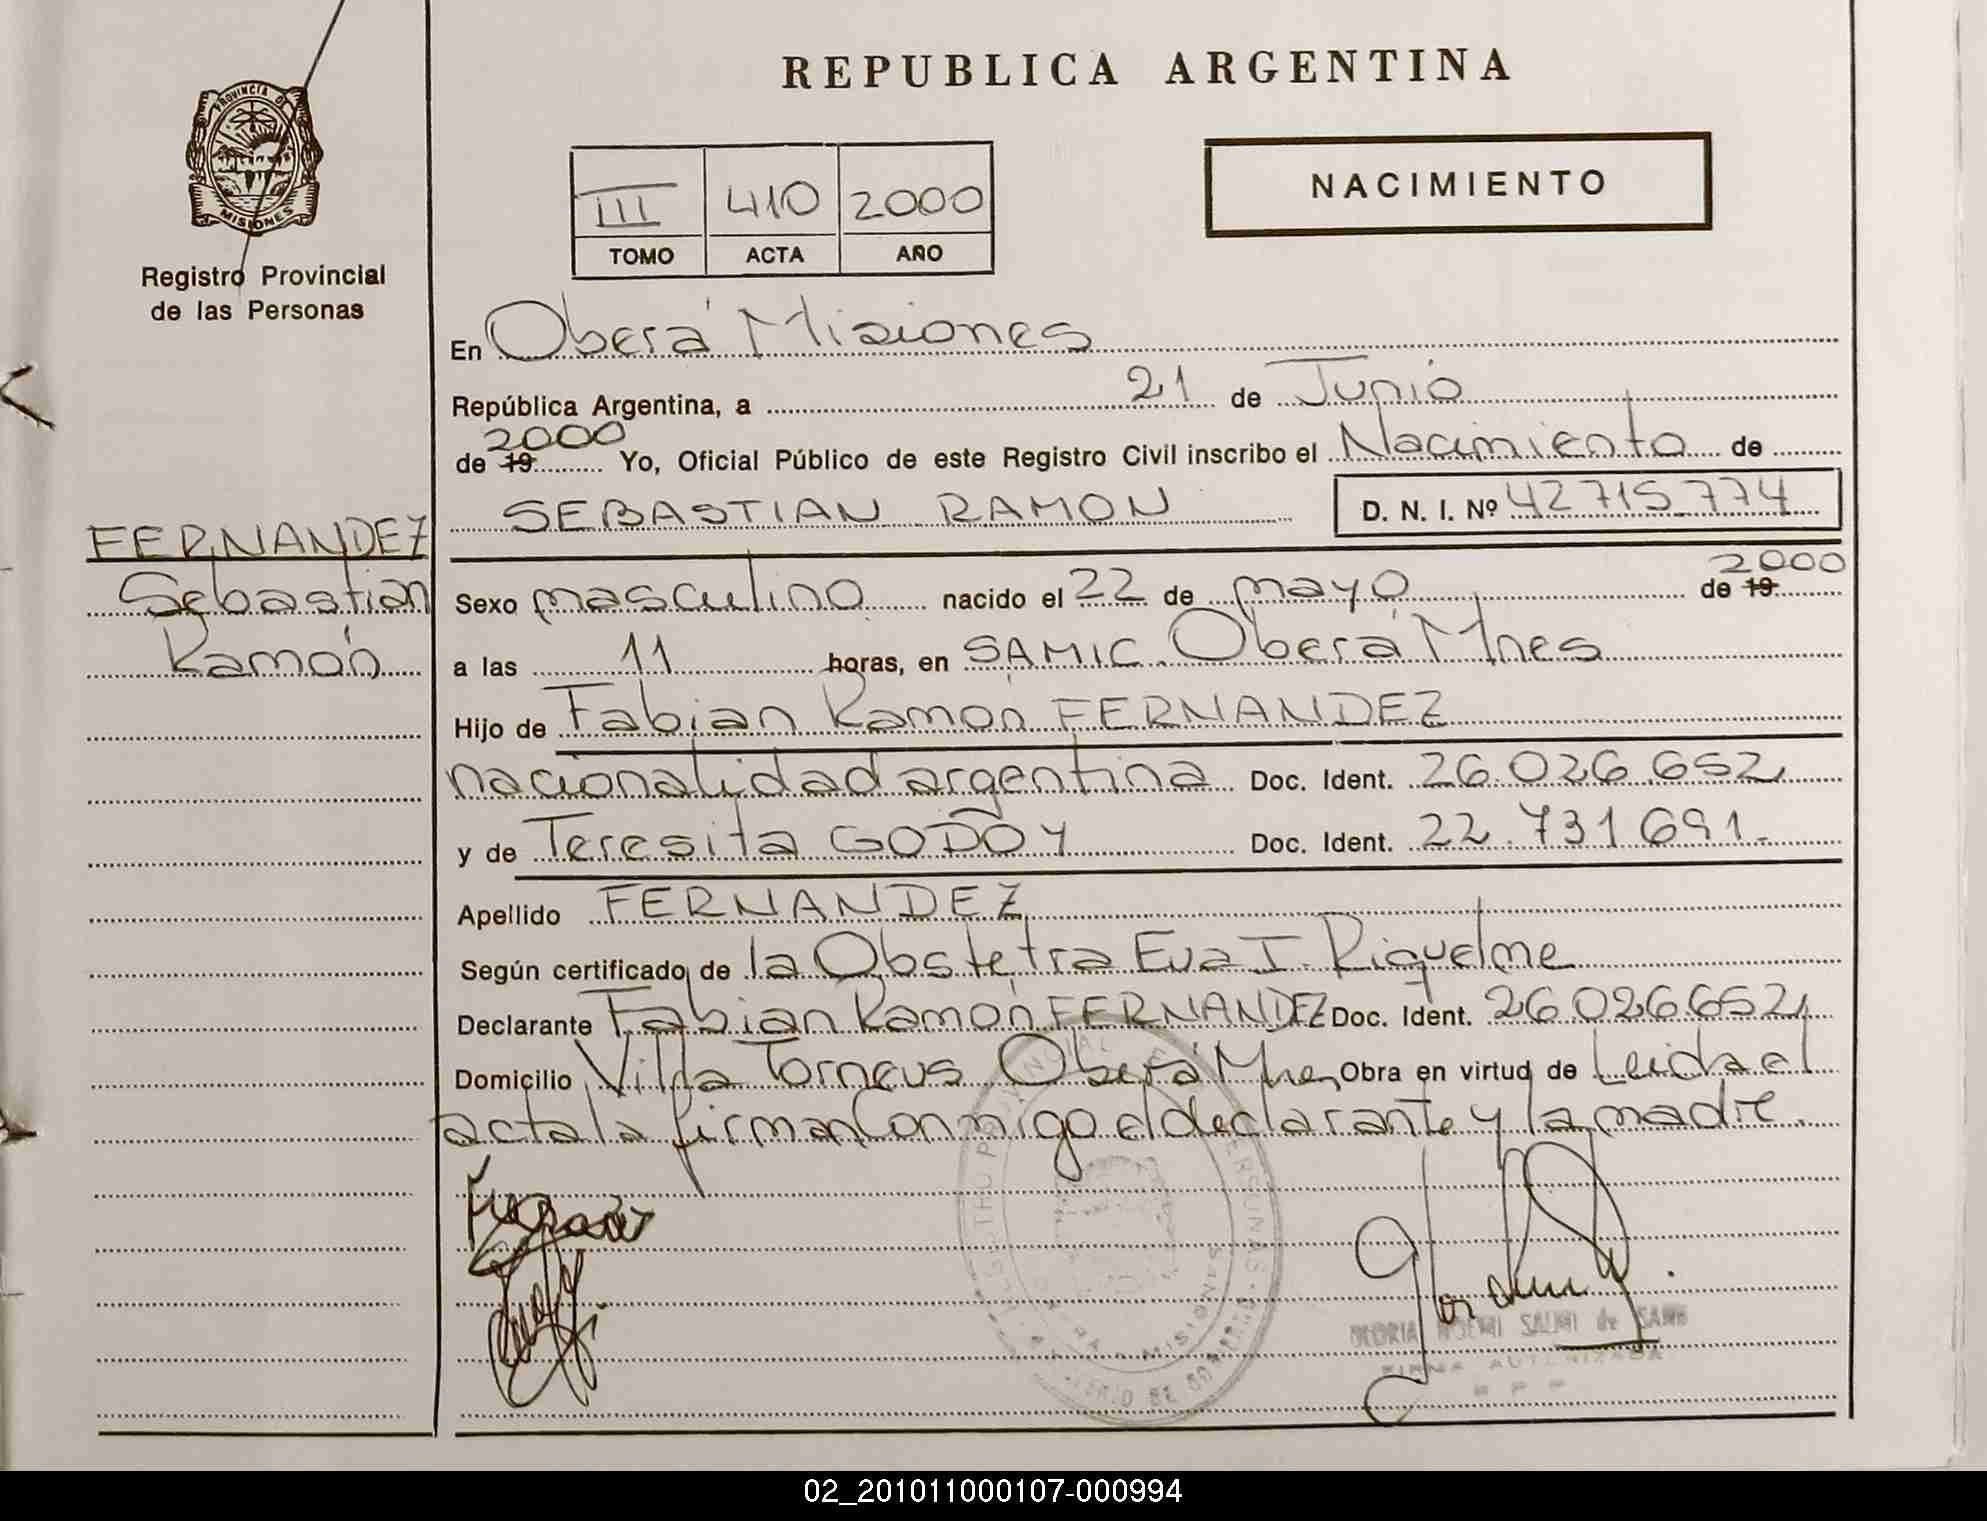 PROVINCIA DE
MISIONES
Registro Provincial
de las Personas
FERNANDEZ
Sebastian
Ramón
REPUBLICA ARGENTINA
III 410 2000
TOMO ACTA AÑO
NACIMIENTO
En Oberá Misiones
República Argentina, a 21 de Junio
de 19 2000 Yo, Oficial Público de este Registro Civil inscribo el Nacimiento de
SEBASTIAN RAMON D. N. I. Nº 42.715.774
Sexo masculino nacido el 22 de mayo de 19 2000
a las 11 horas, en SAMIC Oberá Mnes
Hijo de Fabian Ramón FERNANDEZ
nacionalidad argentina Doc. Ident. 26.026.652
y de Teresita GODOY Doc. Ident. 22.731.691.-
Apellido FERNANDEZ
Según certificado de la Obstetra Eva I. Riquelme
Declarante Fabian Ramón FERNANDEZ Doc. Ident. 26.026.652
Domicilio Villa Torneus Oberá Mnes Obra en virtud de Leida el
acta la firman conmigo el declarante y la madre.
GLORIA NOEMI SALMI de
FIRMA AUTORIZADA
R P P
02_201011000107-000994